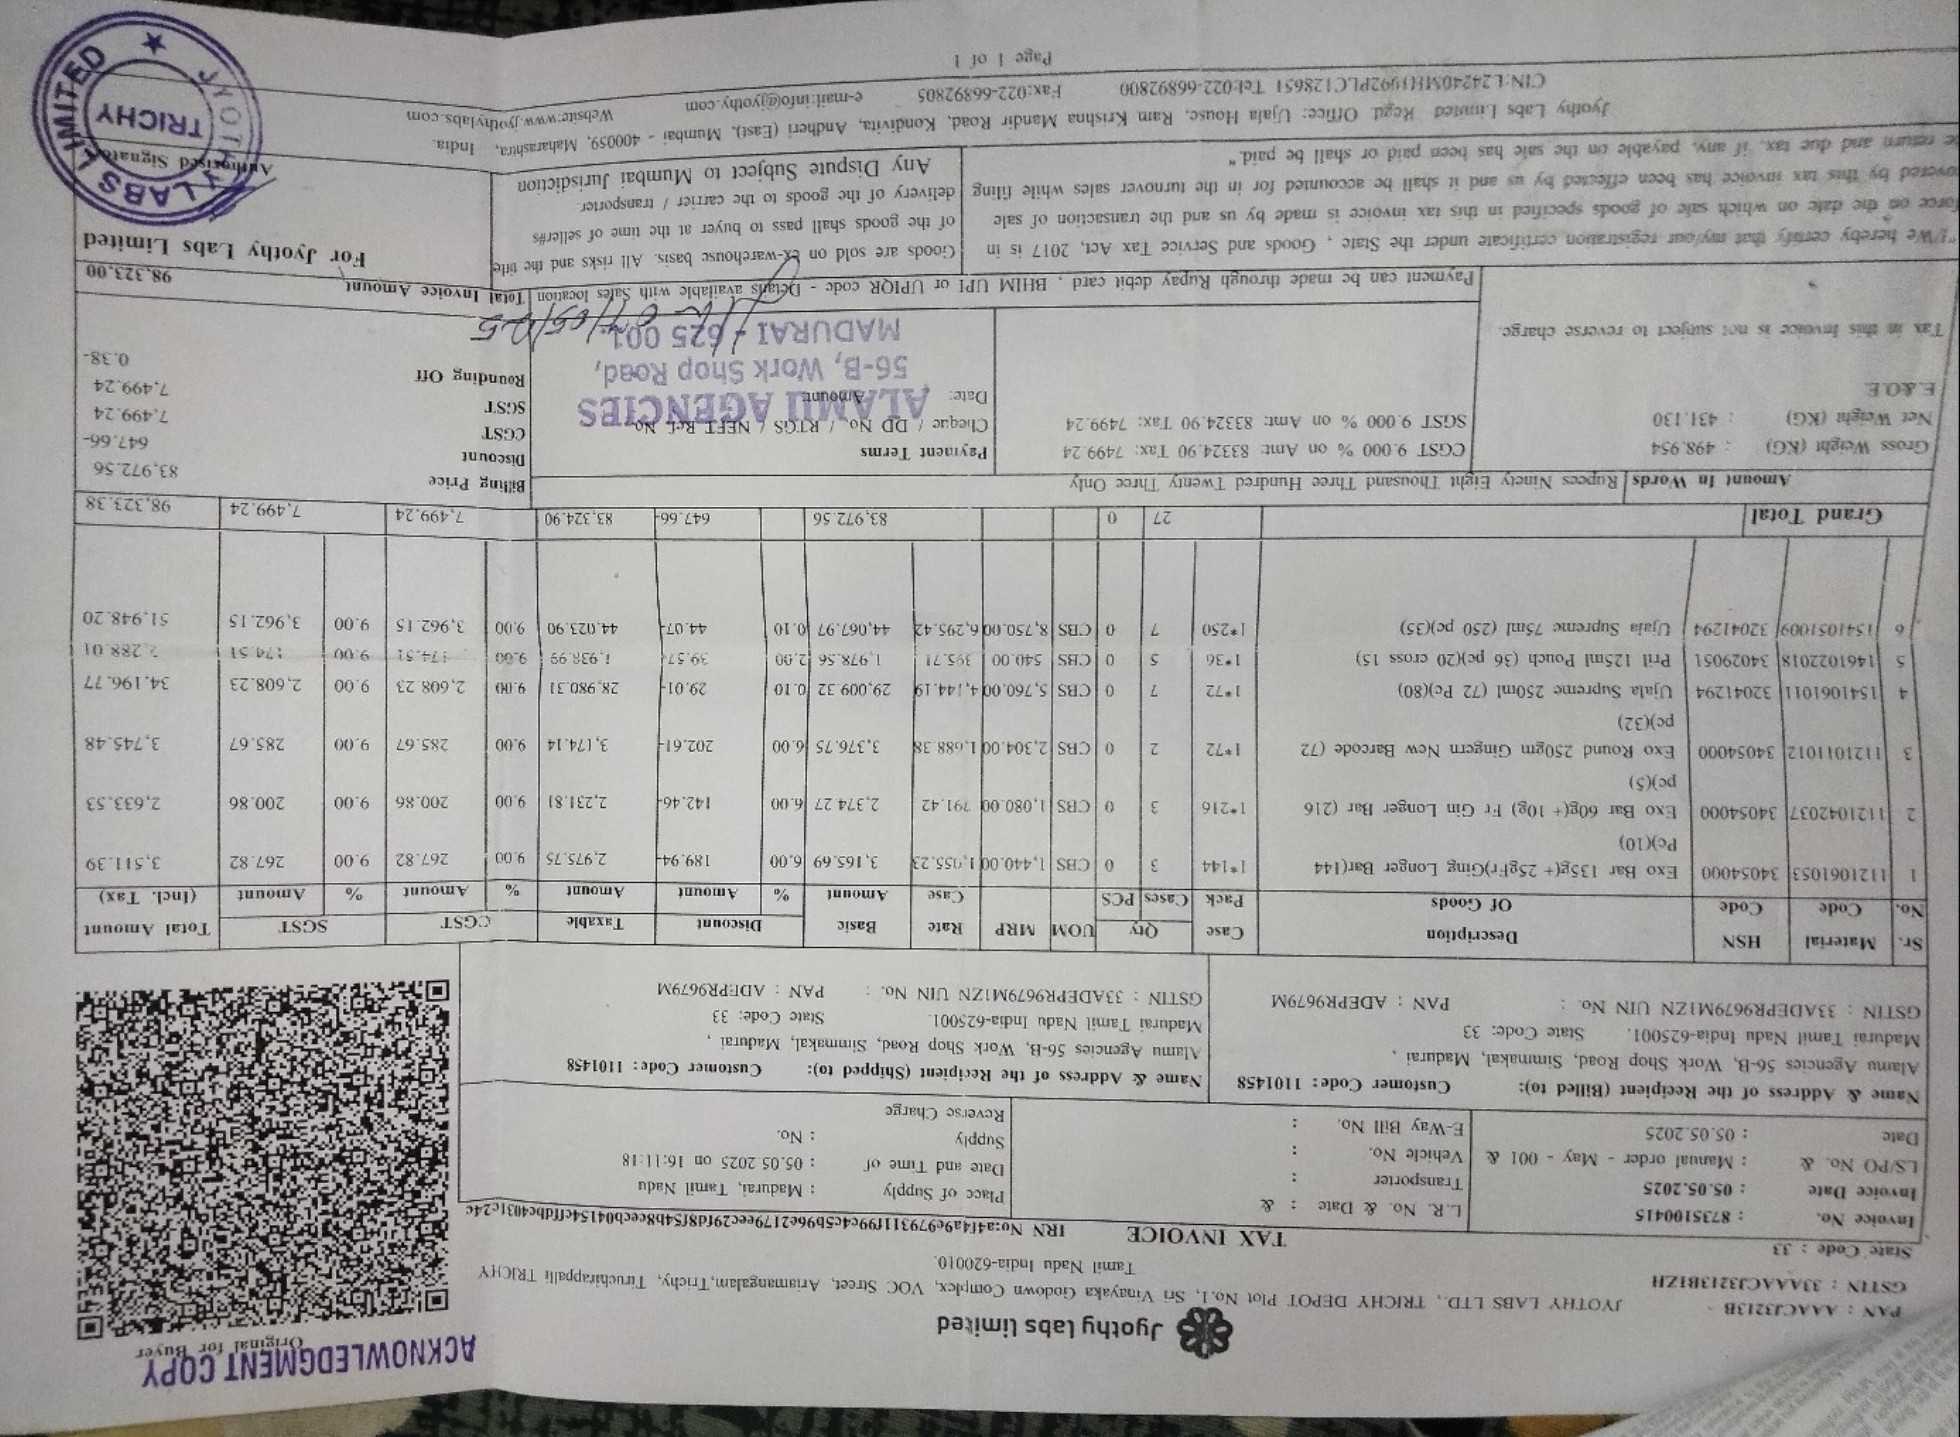 ACKNOWLEDGMENT COPY
Original for Buyer
Jyothy labs limited
PAN : AAACJ3213B
GSTIN : 33AAACJ3213B1ZH
State Code : 33
JYOTHY LABS LTD., TRICHY DEPOT Plot No.1, Sri Vinayaka Godown Complex, VOC Street, Ariamangalam,Trichy, Tiruchirappalli TRICHY
Tamil Nadu India-620010.
TAX INVOICE
IRN No:
Invoice No. : 8735100415
Invoice Date : 05.05.2025
LS/PO No. & : Manual order - May - 001 &
Date : 05.05.2025
L.R. No. & Date : &
Transporter :
Vehicle No. :
E-Way Bill No. :
Place of Supply : Madurai, Tamil Nadu
Date and Time of : 05.05.2025 on 16:11:18
Supply : No.
Reverse Charge
Name & Address of the Recipient (Billed to): Customer Code: 1101458
Alamu Agencies 56-B, Work Shop Road, Simmakal, Madurai ,
Madurai Tamil Nadu India-625001. State Code: 33
GSTIN : 33ADEPR9679M1ZN UIN No. : PAN : ADEPR9679M
Name & Address of the Recipient (Shipped to): Customer Code: 1101458
Alamu Agencies 56-B, Work Shop Road, Simmakal, Madurai ,
Madurai Tamil Nadu India-625001. State Code: 33
GSTIN : 33ADEPR9679M1ZN UIN No. : PAN : ADEPR9679M
Sr. No. Material Code HSN Code Description Of Goods Case Pack Qty Cases PCS UOM MRP Rate Case Basic Amount Discount % Amount Taxable Amount CGST % Amount SGST % Amount Total Amount (Incl. Tax)
1 1121061053 34054000 Exo Bar 135g(+ 25gFr)Ging Longer Bar(144 1*144 3 0 CBS 1,440.00 1,055.23 3,165.69 6.00 189.94- 2,975.75 9.00 267.82 9.00 267.82 3,511.39
Pc)(10)
2 1121042037 34054000 Exo Bar 60g(+ 10g) Fr Gin Longer Bar (216 1*216 3 0 CBS 1,080.00 791.42 2,374.27 6.00 142.46- 2,231.81 9.00 200.86 9.00 200.86 2,633.53
pc)(5)
3 1121011012 34054000 Exo Round 250gm Gingern New Barcode (72 1*72 2 0 CBS 2,304.00 1,688.38 3,376.75 6.00 202.61- 3,174.14 9.00 285.67 9.00 285.67 3,745.48
pc)(32)
4 1541061011 32041294 Ujala Supreme 250ml (72 Pc)(80) 1*72 7 0 CBS 5,760.00 4,144.19 29,009.32 0.10 29.01- 28,980.31 9.00 2,608.23 9.00 2,608.23 34,196.77
5 1461022018 34029051 Pril 125ml Pouch (36 pc)(20 cross 15) 1*36 5 0 CBS 540.00 395.71 1,978.56 2.00 39.57- 1,938.99 9.00 174.51 9.00 174.51 2,288.01
6 1541051009 32041294 Ujala Supreme 75ml (250 pc)(35) 1*250 7 0 CBS 8,750.00 6,295.42 44,067.97 0.10 44.07- 44,023.90 9.00 3,962.15 9.00 3,962.15 51,948.20
Grand Total 27 0 83,972.56 647.66- 83,324.90 7,499.24 7,499.24 98,323.38
Amount In Words Rupees Ninety Eight Thousand Three Hundred Twenty Three Only
Gross Weight (KG) : 498.954
Net Weight (KG) : 431.130
E.&O.E.
Tax in this Invoice is not subject to reverse charge.
CGST 9.000 % on Amt: 83324.90 Tax: 7499.24
SGST 9.000 % on Amt: 83324.90 Tax: 7499.24
Payment Terms
Cheque / DD No. / RTGS / NEFT Ref. No.
Date: Amount:
ALAMU AGENCIES
56-B, Work Shop Road,
MADURAI - 625 001.
Billing Price 83,972.56
Discount 647.66-
CGST 7,499.24
SGST 7,499.24
Rounding Off 0.38-
Payment can be made through Rupay debit card , BHIM UPI or UPIQR code - Details available with Sales location
Total Invoice Amount 98,323.00
"I/We hereby certify that my/our registration certificate under the State , Goods and Service Tax Act, 2017 is in
force on the date on which sale of goods specified in this tax invoice is made by us and the transaction of sale
covered by this tax invoice has been effected by us and it shall be accounted for in the turnover sales while filing
return and due tax, if any, payable on the sale has been paid or shall be paid."
Goods are sold on ex-warehouse basis. All risks and the title
of the goods shall pass to buyer at the time of seller#s
delivery of the goods to the carrier / transporter.
Any Dispute Subject to Mumbai Jurisdiction
For Jyothy Labs Limited
Authorised Signatory
JYOTHY LABS LIMITED
TRICHY
Jyothy Labs Limited Regd. Office: Ujala House, Ram Krishna Mandir Road, Kondivita, Andheri (East), Mumbai - 400059, Maharashtra, India.
CIN:L24240MH1992PLC128651 Tel:022-66892800 Fax:022-66892805 e-mail:info@jyothy.com Website:www.jyothylabs.com
Page 1 of 1